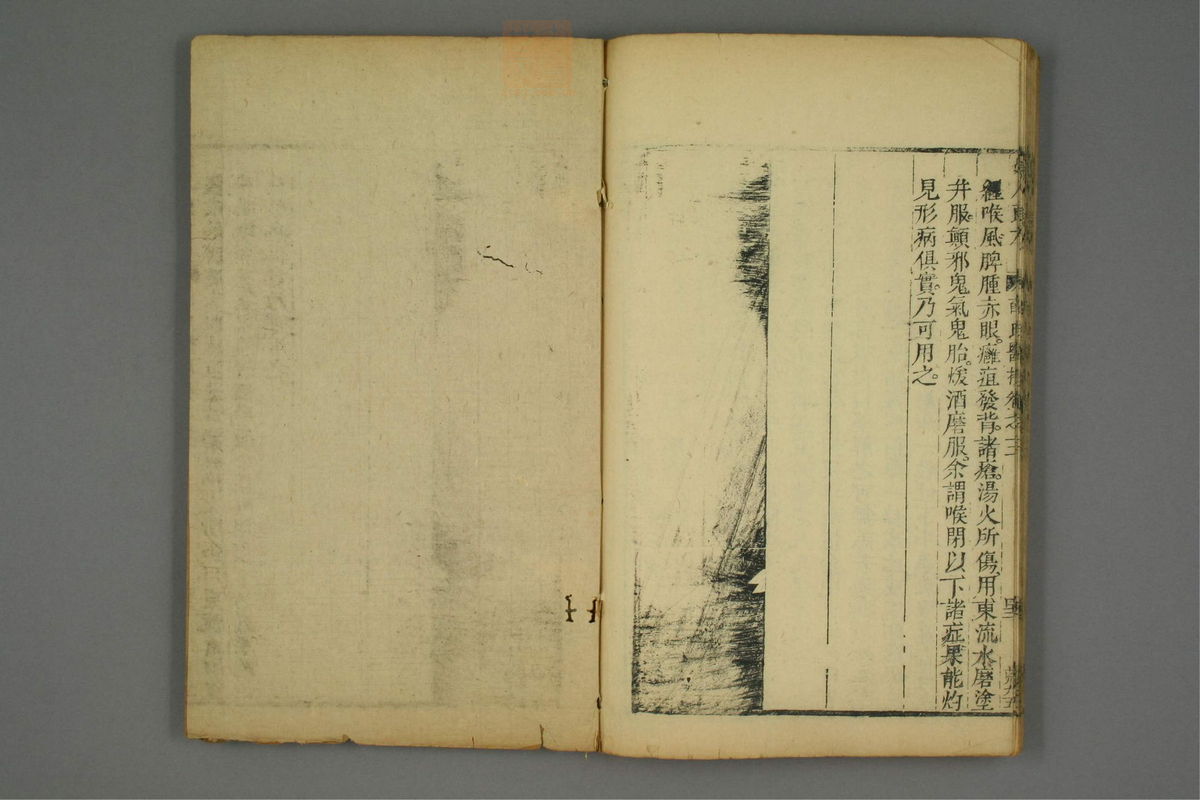 纒喉風。脾腫赤眼。癰疽發背。諸瘡。湯火所傷、用東流水磨塗
幷服。顛邪鬼氣鬼胎。煖酒磨服。余謂喉閉以下諸症果能灼
見形病俱實。乃可用之。